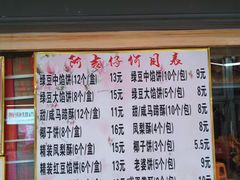 阿麦仔价目表
绿豆中馅饼(12个/盒) 13元 绿豆中馅饼(10个/包) 9元
绿豆大馅饼(12个/盒) 15元 绿豆大馅饼(5个/包) 8元
甜/咸马蹄酥(12个/盒) 11元 甜/咸马蹄酥(10个/包) 9元
椰子饼(8个/盒) 16元 凤梨酥(4个/包) 8元
精装凤梨酥(6个/盒) 15元 椰子饼(3个/包) 5.5元
精装红豆馅饼(6个/盒) 13元 老婆饼(5个/包) 9元
10元